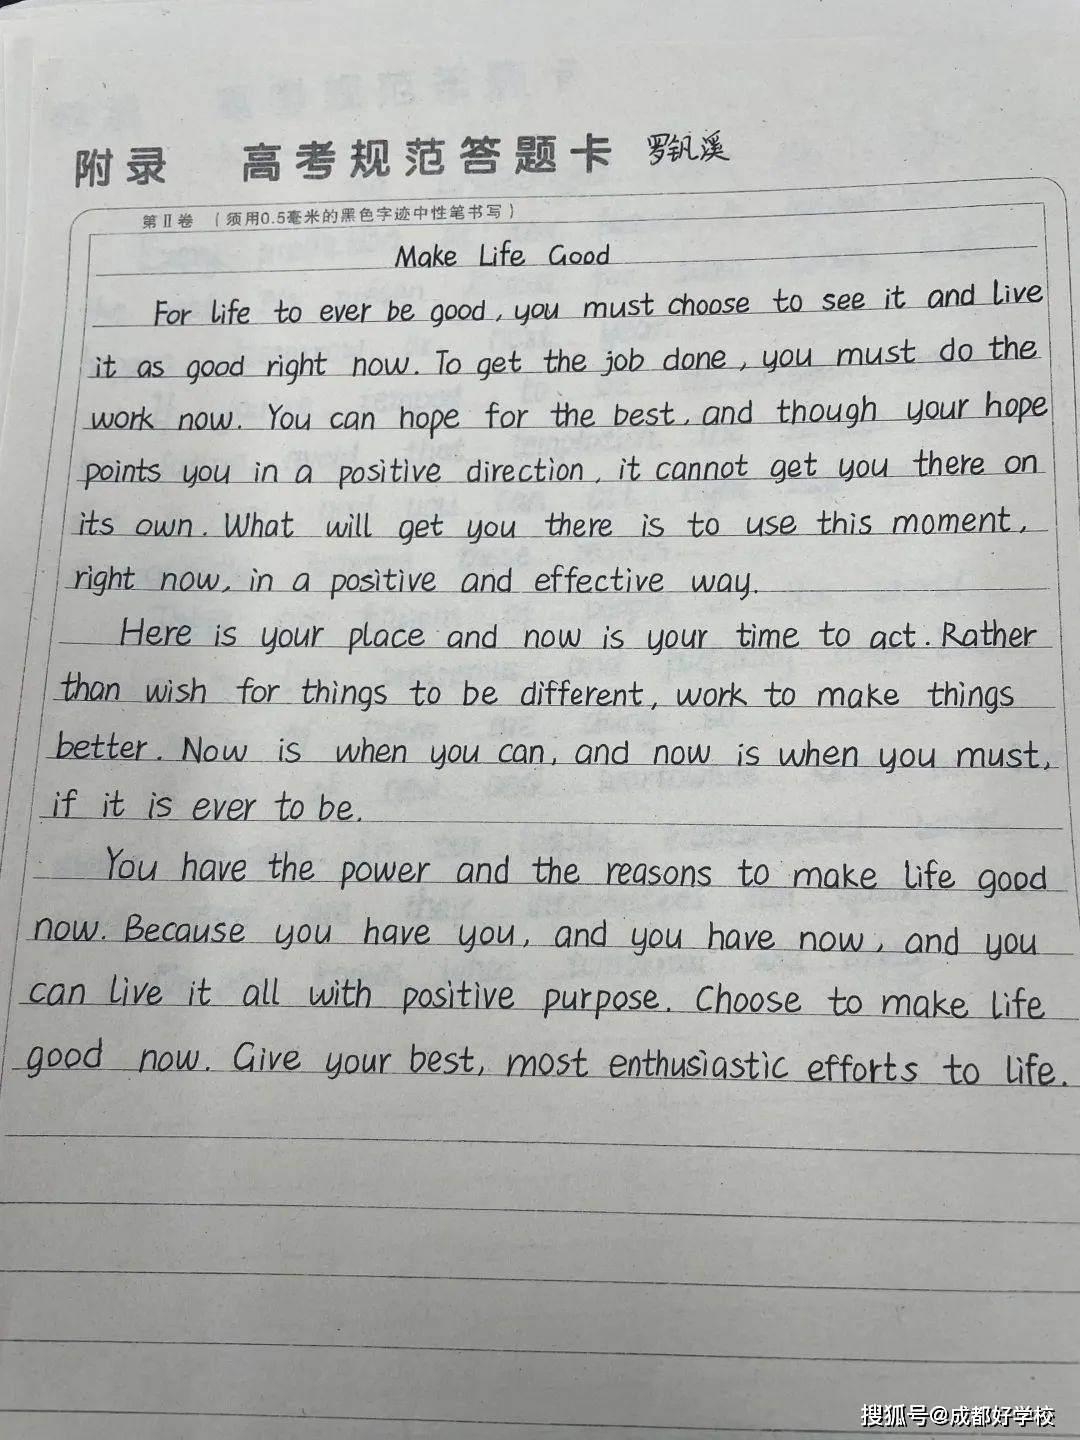 附录 高考规范答题卡 罗钒溪
第Ⅱ卷 （须用0.5毫米的黑色字迹中性笔书写）
Make Life Good
For life to ever be good, you must choose to see it and live
it as good right now. To get the job done, you must do the
work now. You can hope for the best, and though your hope
points you in a positive direction, it cannot get you there on
its own. What will get you there is to use this moment,
right now, in a positive and effective way.
Here is your place and now is your time to act. Rather
than wish for things to be different, work to make things
better. Now is when you can, and now is when you must,
if it is ever to be.
You have the power and the reasons to make life good
now. Because you have you, and you have now, and you
can live it all with positive purpose. Choose to make life
good now. Give your best, most enthusiastic efforts to life.
搜狐号@成都好学校